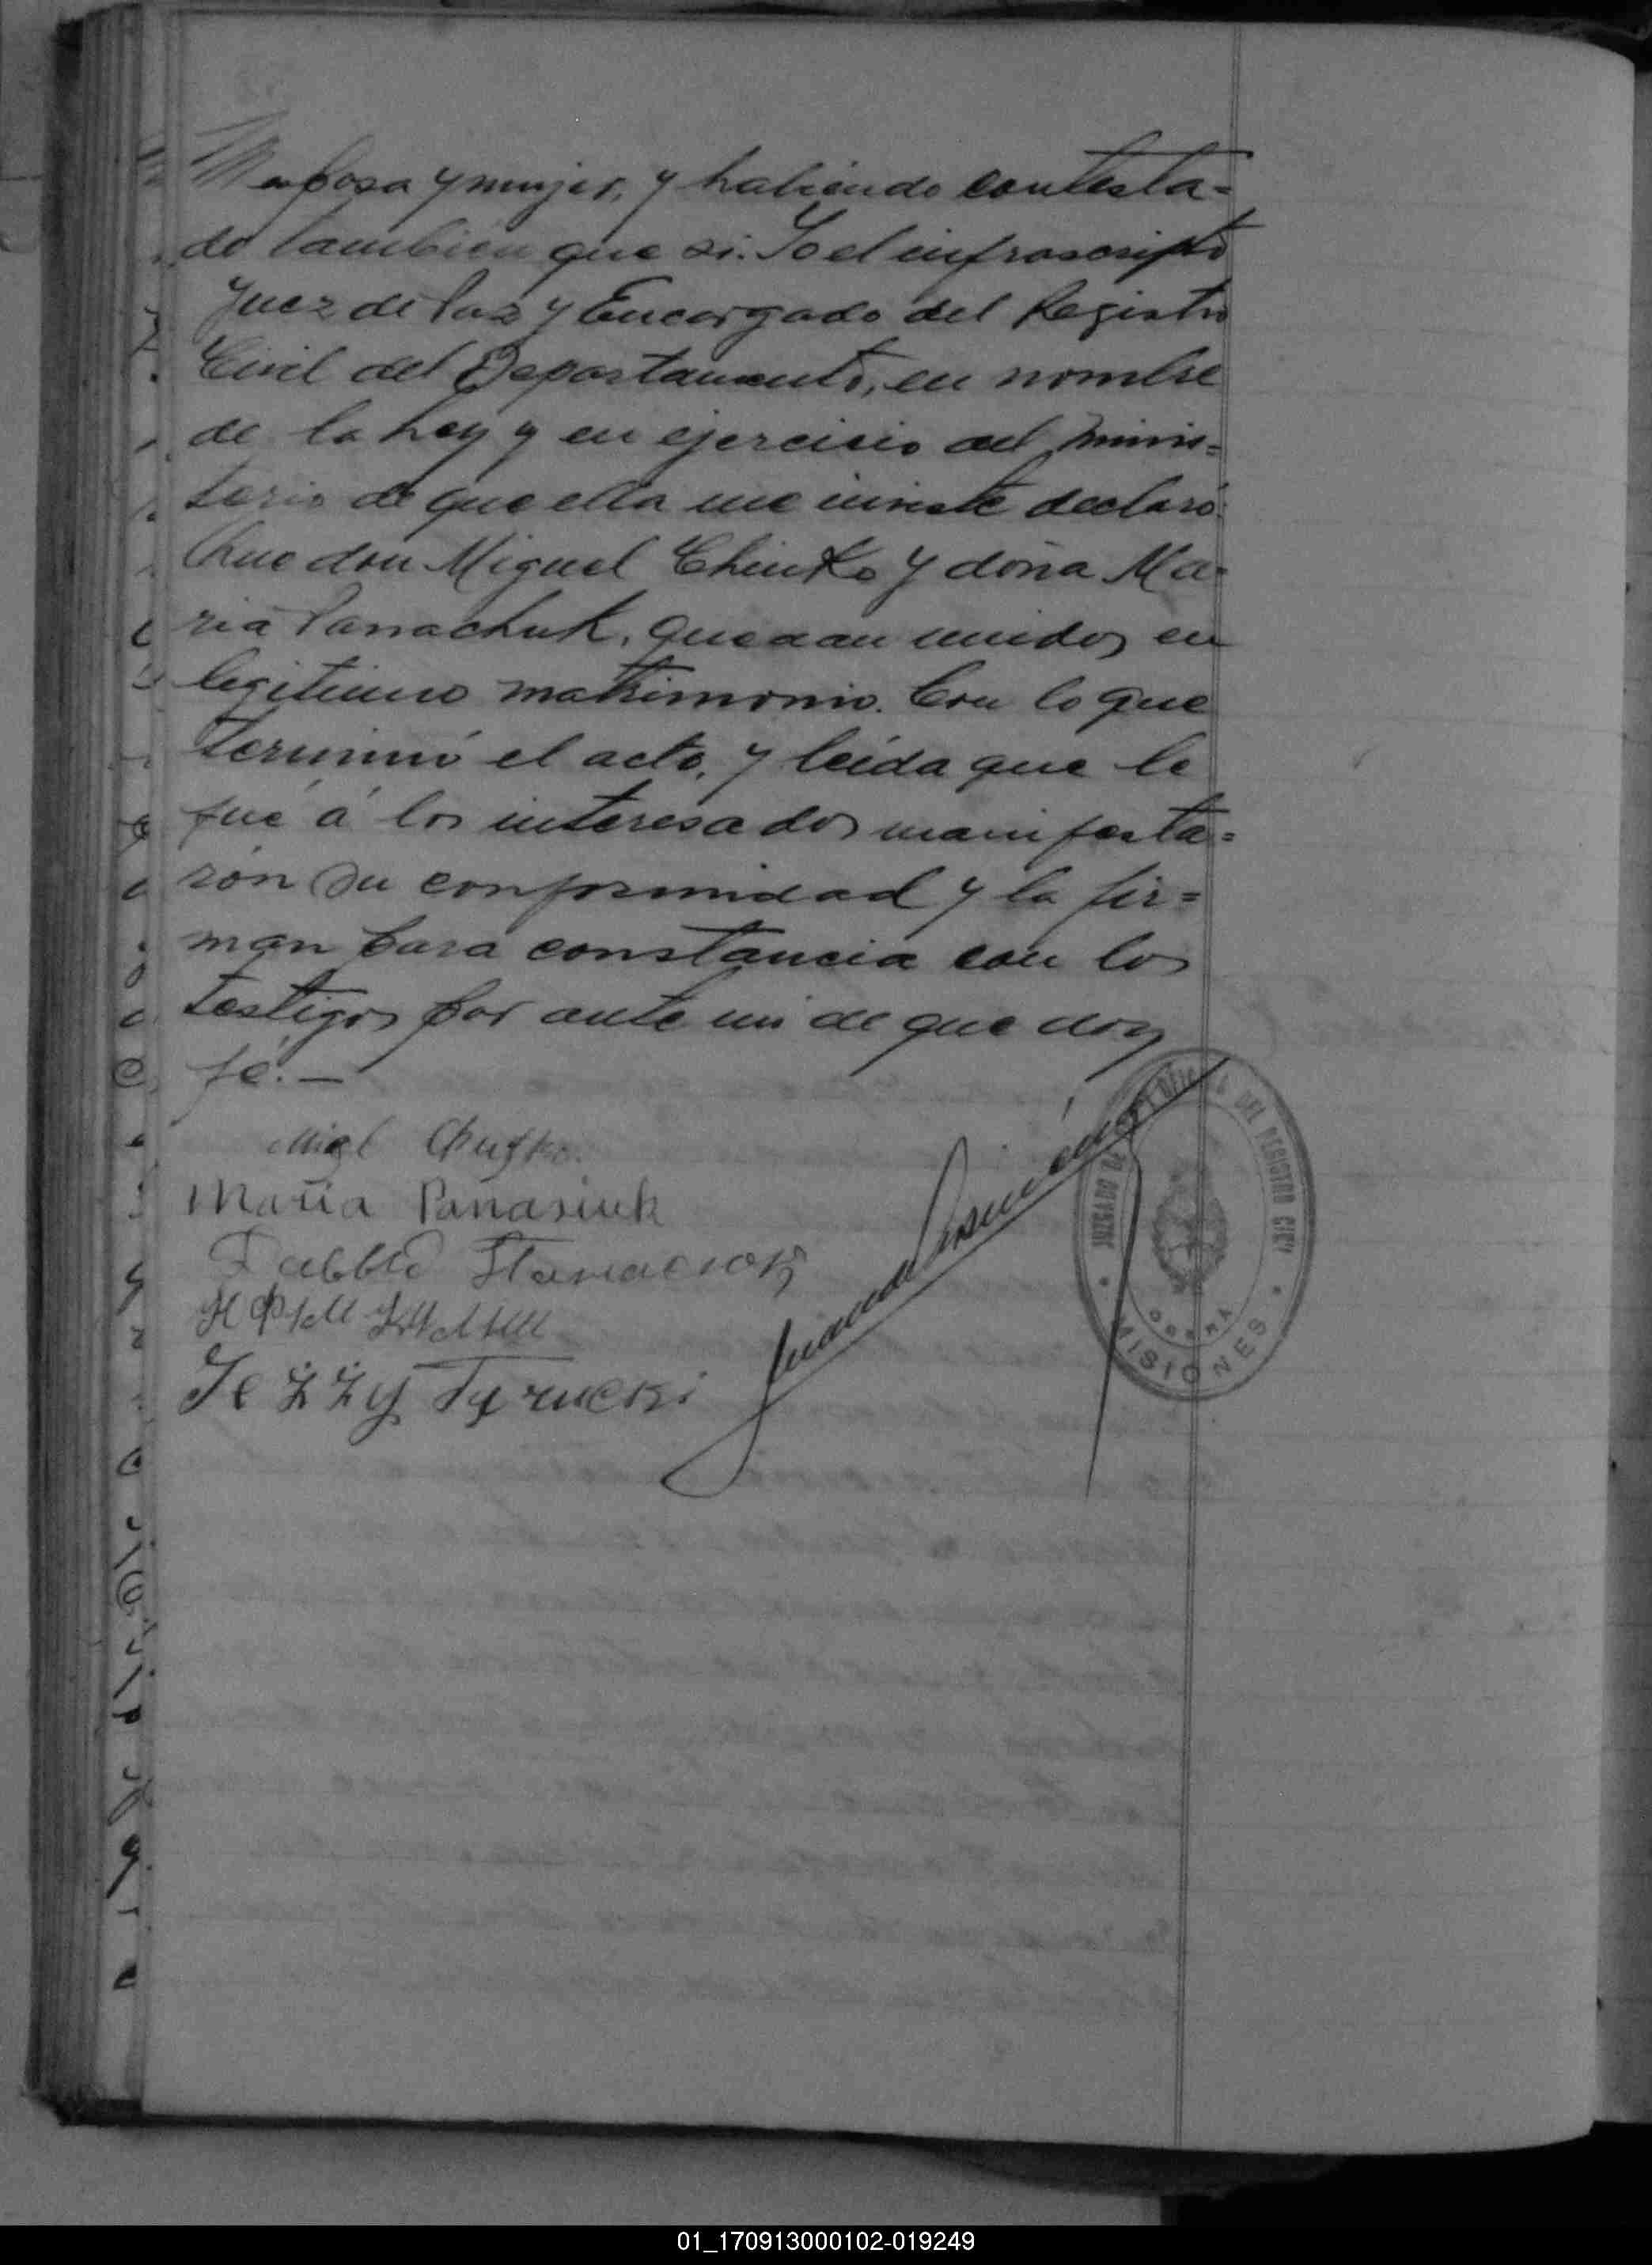 esposa y mujer, y habiendo contesta=
do tambien que si. Yo el infrascripto
Juez de Paz y Encargado del Registro
Civil del Departamento, en nombre
de la Ley y en ejercicio del minis=
terio de que ella me inviste declaró:
Que don Miguel Chiuko y doña Ma=
ria Panachuk, quedan unidos en
legitimo matrimonio. Con lo que
terminó el acto, y leída que le
fué á los interesados manifesta=
rón su conformidad y la fir=
man para constancia con los
testigos por ante mi de que doy
fé.—
Maria Panasiuk
Jeżży
OFICINA DEL REGISTRO CIVIL
JUZGADO DE PAZ
OBERA
MISIONES
01_170913000102-019249